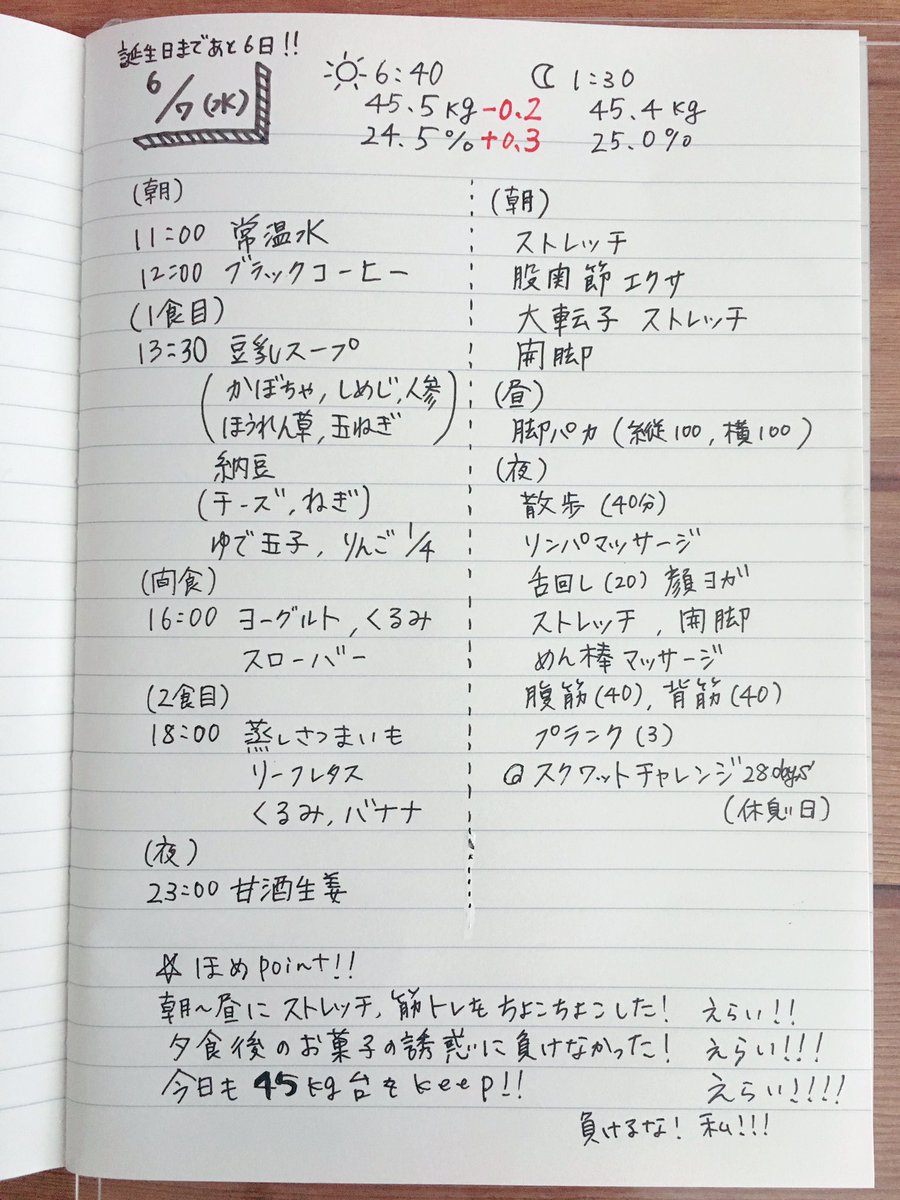 誕生日まであと6日!!
6/7(水)
6:40
1:30
45.5kg -0.2
45.4kg
24.5% +0.3
25.0%
(朝)
11:00 常温水
12:00 ブラックコーヒー
(1食目)
13:30 豆乳スープ
(かぼちゃ,しめじ,人参
ほうれん草,玉ねぎ)
納豆
(チーズ,ねぎ)
ゆで玉子,りんご1/4
(間食)
16:00 ヨーグルト,くるみ
スローバー
(2食目)
18:00 蒸しさつまいも
リーフレタス
くるみ,バナナ
(夜)
23:00 甘酒生姜
(朝)
ストレッチ
股関節エクサ
大転子 ストレッチ
開脚
(昼)
脚パカ(縦100,横100)
(夜)
散歩(40分)
リンパマッサージ
舌回し(20) 顔ヨガ
ストレッチ,開脚
めん棒マッサージ
腹筋(40),背筋(40)
プランク(3)
@スクワットチャレンジ28days
(休息日)
☆ほめpoint!!
朝~昼にストレッチ,筋トレもちょこちょこした! えらい!!
夕食後のお菓子の誘惑に負けなかった! えらい!!!
今日も45kg台をkeep!! えらい!!!!
負けるな!私!!!